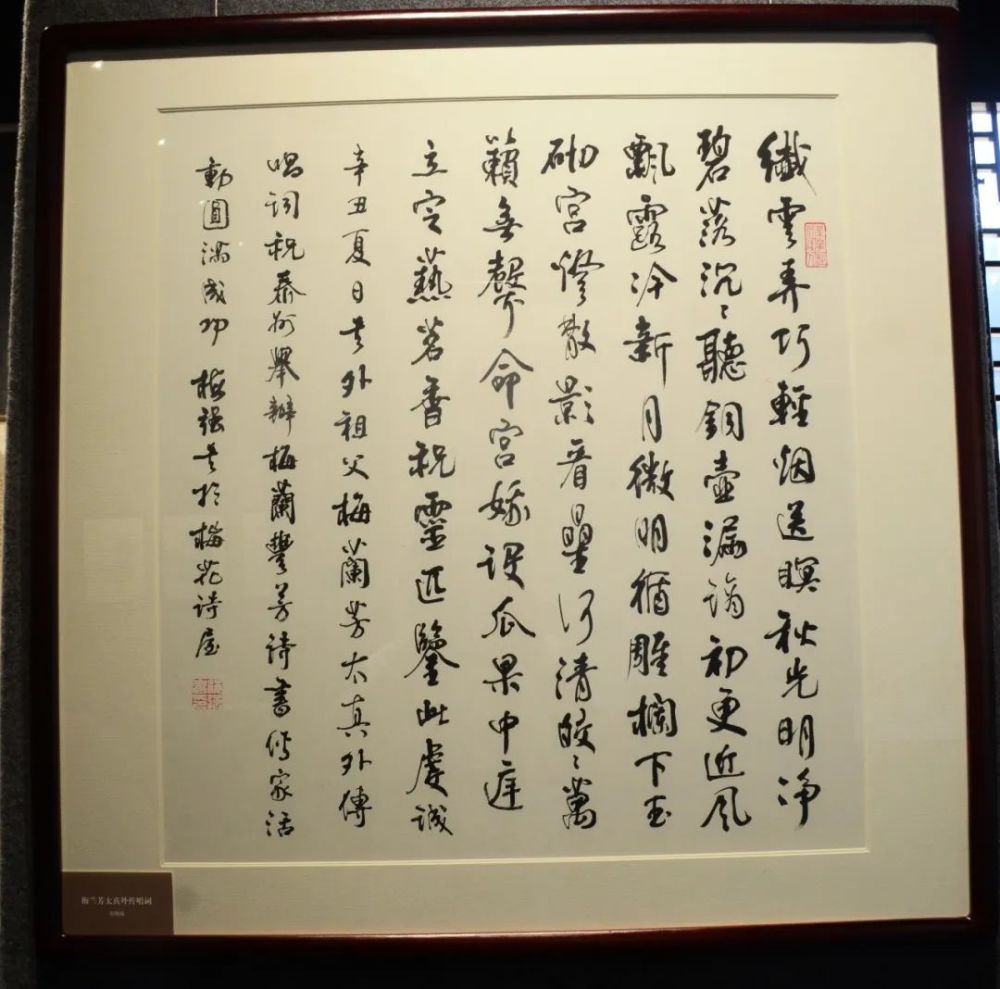 纖雲弄巧輕烟送暝秋光明净
碧落沉沉聽銅壷漏滴初更近風
飄露冷新月微明循雕欄下玉
砌宫燈散影看星河清皎皎萬
籟無聲命宫娥設瓜果中庭
立定爇茗香祝靈匹鑒此虔誠
辛丑夏日书外祖父梅蘭芳太真外傳
唱词祝泰州舉辦梅蘭馨芳詩書傳家活
動圓满成功 梅强书於梅花诗屋
梅兰芳太真外传唱词